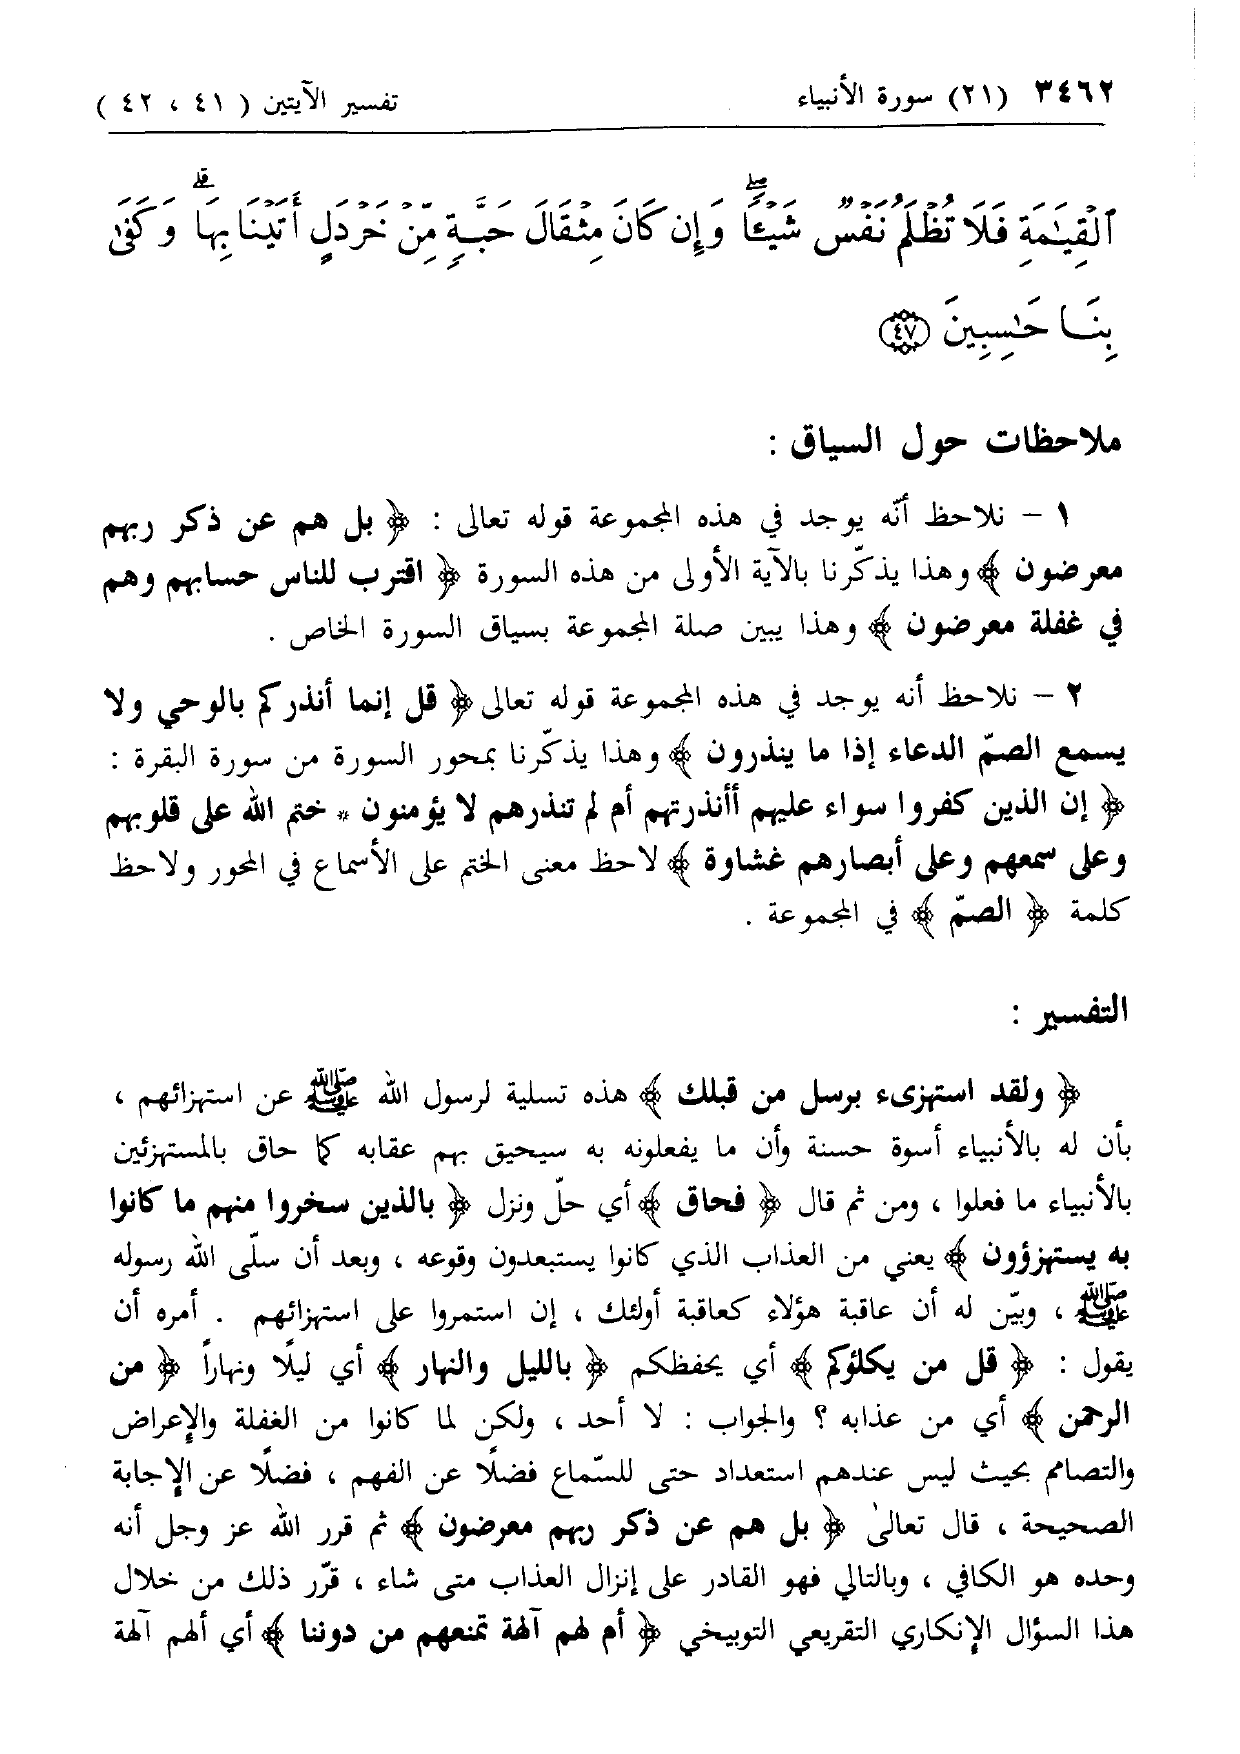 ٣٤٦٢ (٢١) سورة الأنبياء تفسير الآيتين ( ٤١ ، ٤٢ )
ٱلْقِيَٰمَةِ فَلَا تُظْلَمُ نَفْسٌ شَيْـًٔا ۖ وَإِن كَانَ مِثْقَالَ حَبَّةٍ مِّنْ خَرْدَلٍ أَتَيْنَا بِهَا ۗ وَكَفَىٰ
بِنَا حَٰسِبِينَ ﴿٤٧﴾
ملاحظات حول السياق :
١ – نلاحظ أنّه يوجد في هذه المجموعة قوله تعالى : ﴿ بل هم عن ذكر ربهم
معرضون ﴾ وهذا يذكّرنا بالآية الأولى من هذه السورة ﴿ اقترب للناس حسابهم وهم
في غفلة معرضون ﴾ وهذا يبين صلة المجموعة بسياق السورة الخاص .
٢ – نلاحظ أنه يوجد في هذه المجموعة قوله تعالى ﴿ قل إنما أنذركم بالوحي ولا
يسمع الصمّ الدعاء إذا ما ينذرون ﴾ وهذا يذكّرنا بمحور السورة من سورة البقرة :
﴿ إن الذين كفروا سواء عليهم أأنذرتهم أم لم تنذرهم لا يؤمنون * ختم الله على قلوبهم
وعلى سمعهم وعلى أبصارهم غشاوة ﴾ لاحظ معنى الختم على الأسماع في المحور ولاحظ
كلمة ﴿ الصمّ ﴾ في المجموعة .
التفسير :
﴿ ولقد استهزىء برسل من قبلك ﴾ هذه تسلية لرسول الله ﷺ عن استهزائهم ،
بأن له بالأنبياء أسوة حسنة وأن ما يفعلونه به سيحيق بهم عقابه كما حاق بالمستهزئين
بالأنبياء ما فعلوا ، ومن ثم قال ﴿ فحاق ﴾ أي حلّ ونزل ﴿ بالذين سخروا منهم ما كانوا
به يستهزؤون ﴾ يعني من العذاب الذي كانوا يستبعدون وقوعه ، وبعد أن سلّى الله رسوله
ﷺ ، وبيّن له أن عاقبة هؤلاء كعاقبة أولئك ، إن استمروا على استهزائهم . أمره أن
يقول : ﴿ قل من يكلؤكم ﴾ أي يحفظكم ﴿ بالليل والنهار ﴾ أي ليلًا ونهاراً ﴿ من
الرحمن ﴾ أي من عذابه ؟ والجواب : لا أحد ، ولكن لما كانوا من الغفلة والإعراض
والتصامم بحيث ليس عندهم استعداد حتى للسّماع فضلًا عن الفهم ، فضلًا عن الإجابة
الصحيحة ، قال تعالىٰ ﴿ بل هم عن ذكر ربهم معرضون ﴾ ثم قرر الله عز وجل أنه
وحده هو الكافي ، وبالتالي فهو القادر على إنزال العذاب متى شاء ، قرّر ذلك من خلال
هذا السؤال الإنكاري التقريعي التوبيخي ﴿ أم لهم آلهة تمنعهم من دوننا ﴾ أي ألهم آلهة